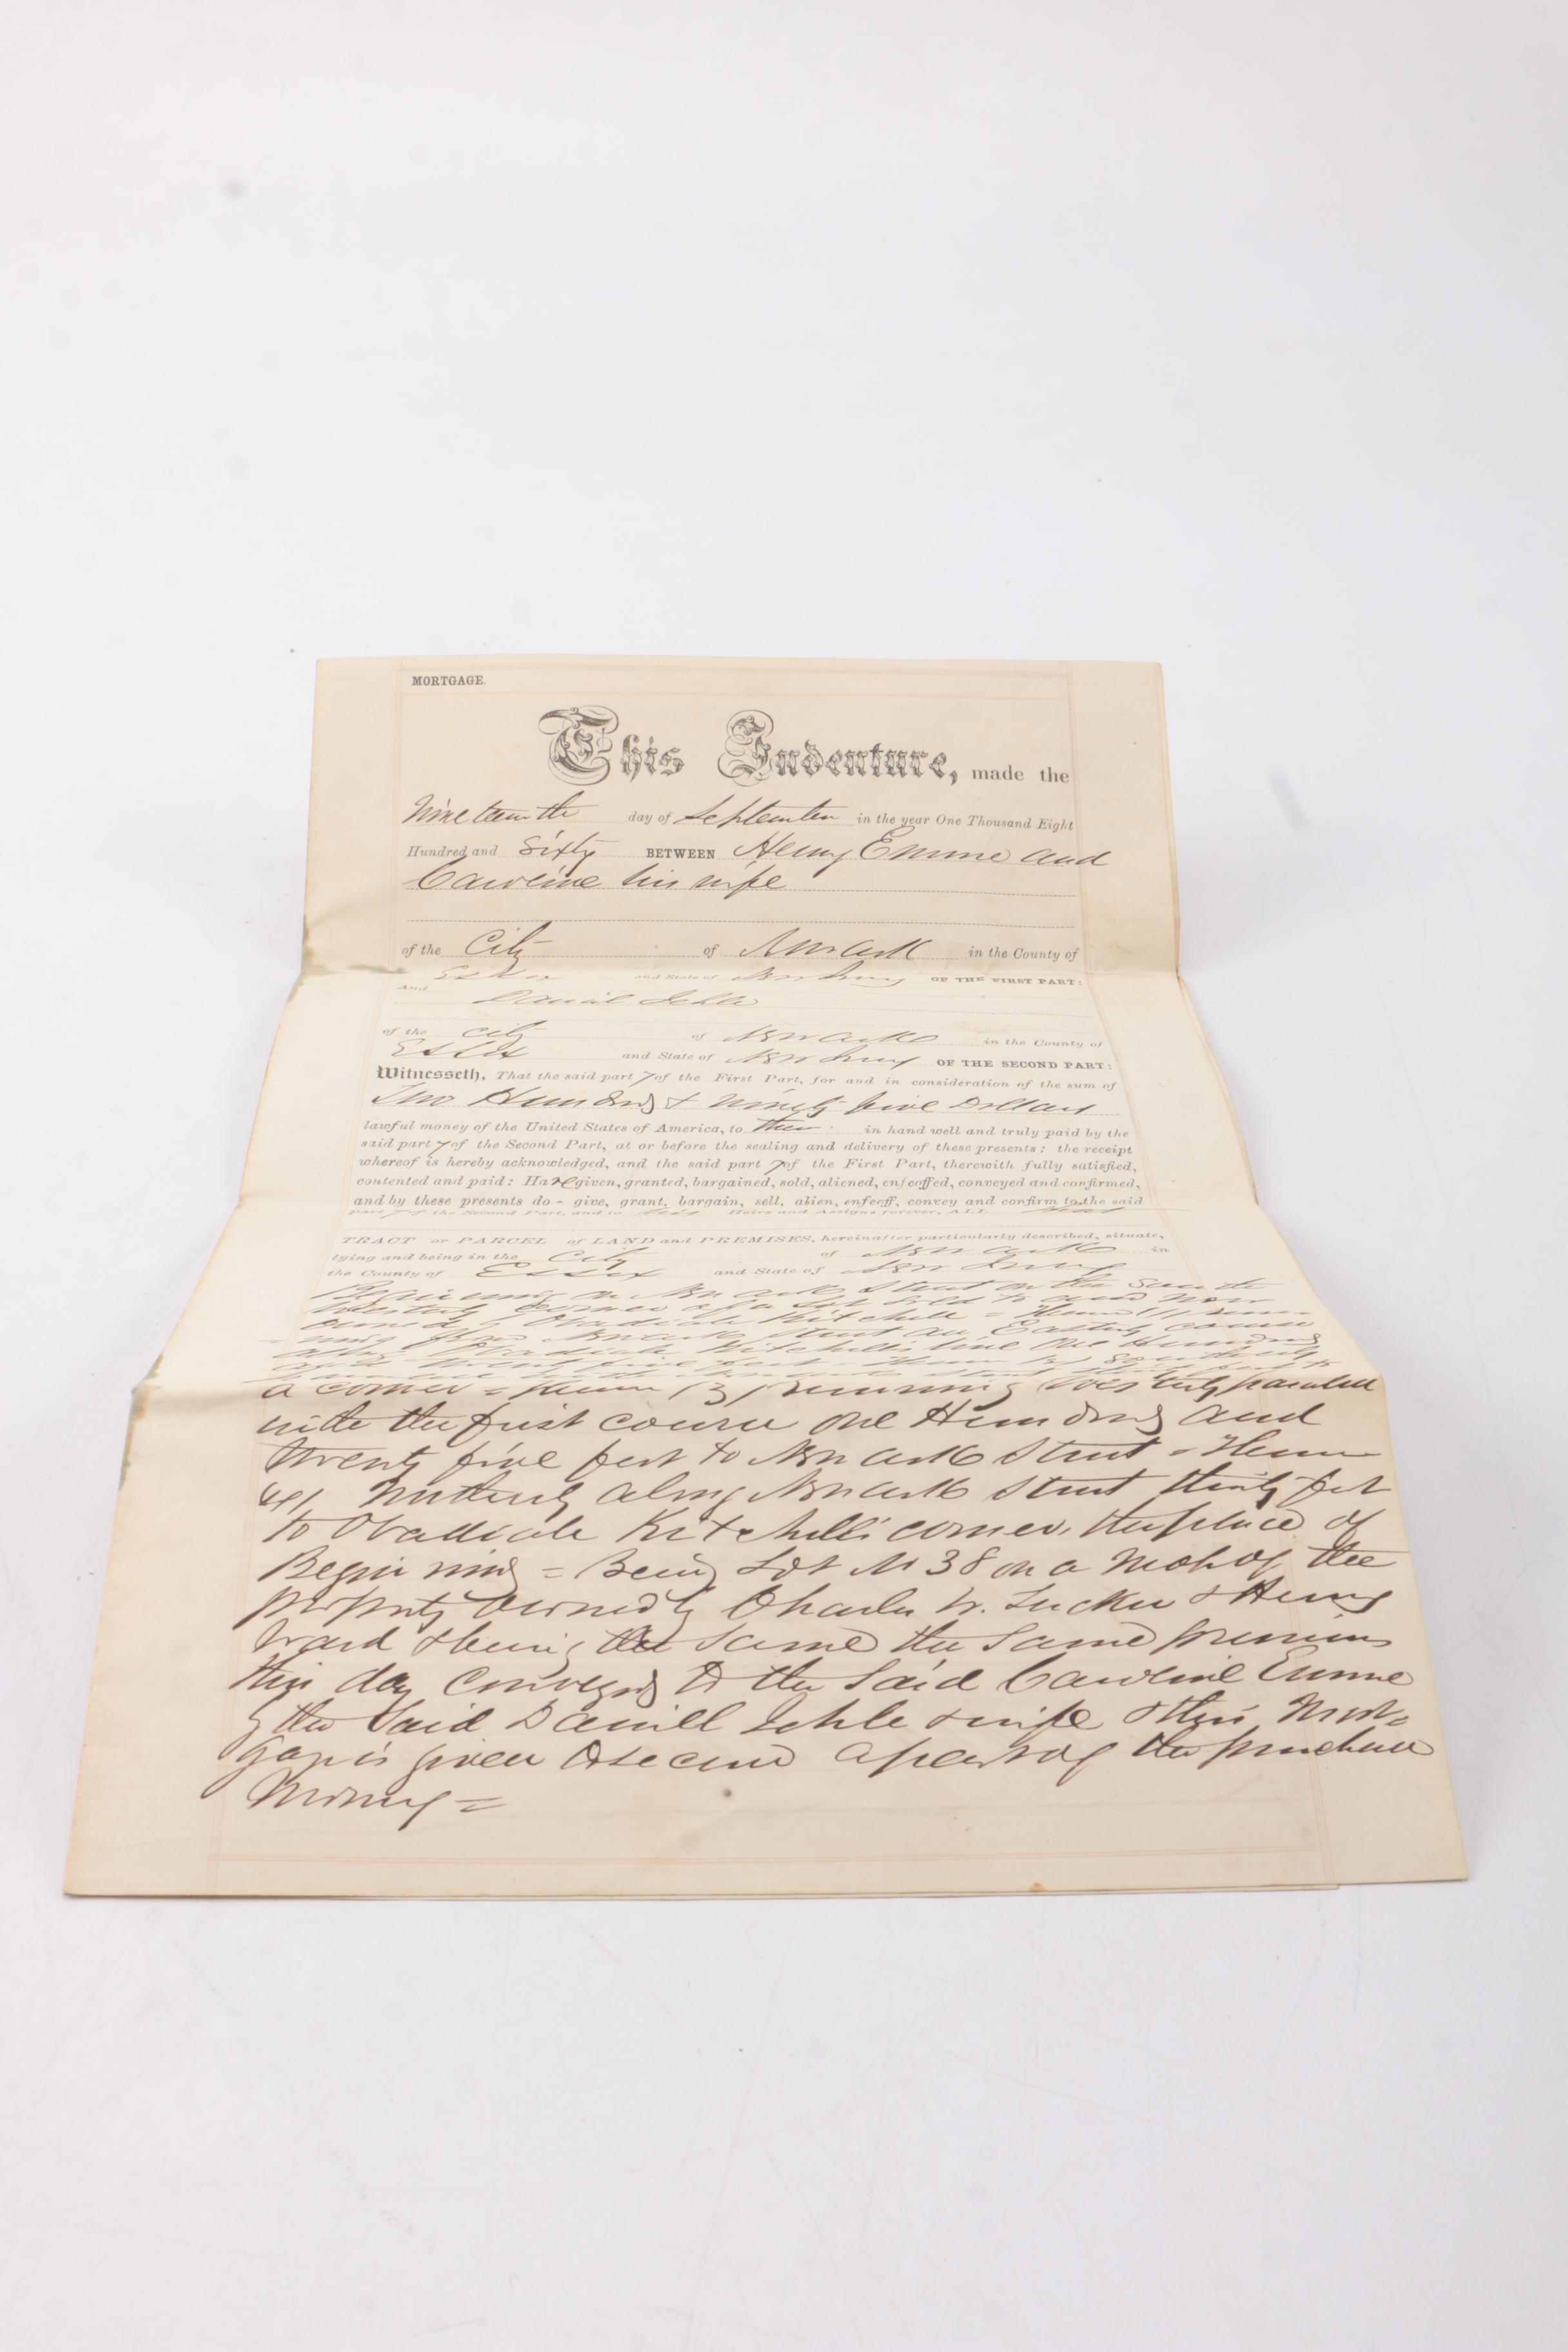 MORTGAGE.
This Indenture, made the
Nineteenth day of September in the year One Thousand Eight
Hundred and Sixty BETWEEN Henry Emme and
Caroline his wife
of the City of Newark in the County of
Essex and State of New Jersey OF THE FIRST PART:
And Daniel
of the City of Newark in the County of
Essex and State of New Jersey OF THE SECOND PART:
Witnesseth, That the said part y of the First Part, for and in consideration of the sum of
Two Hundred & ninety five Dollars
lawful money of the United States of America, to them in hand well and truly paid by the
said part y of the Second Part, at or before the sealing and delivery of these presents: the receipt
whereof is hereby acknowledged, and the said part y of the First Part, therewith fully satisfied,
contented and paid: Have given, granted, bargained, sold, aliened, enfeoffed, conveyed and confirmed,
and by these presents do - give, grant, bargain, sell, alien, enfeoff, convey and confirm to the said
part y of the Second Part, and to his Heirs and Assigns forever, ALL that
TRACT or PARCEL of LAND and PREMISES, hereinafter particularly described, situate,
lying and being in the City of Newark in
the County of Essex and State of New Jersey
Beginning on Newark Street on the South
Westerly corner of a lot sold to and now
owned by Obadiah Kitchell = Thence (1) runn
=ing from Newark Street an Easterly course
along Obadiah Kitchells line One Hundred
and twenty five feet Thence (2) Southerly
feet to
a corner = Thence (3) running Westerly parallel
with the first course one Hundred and
twenty five feet to Newark Street = Thence
(4) Northerly along Newark Street thirty feet
to Obadiah Kitchells corner the place of
Beginning = Being Lot No 38 on a Map of the
property owned by Charles W. Tucker & Henry
Ward & being the same the same premises
this day conveyed to the said Caroline Emme
by the said Daniell & wife & this Mort=
gage is given to secure a part of the purchase
Money =